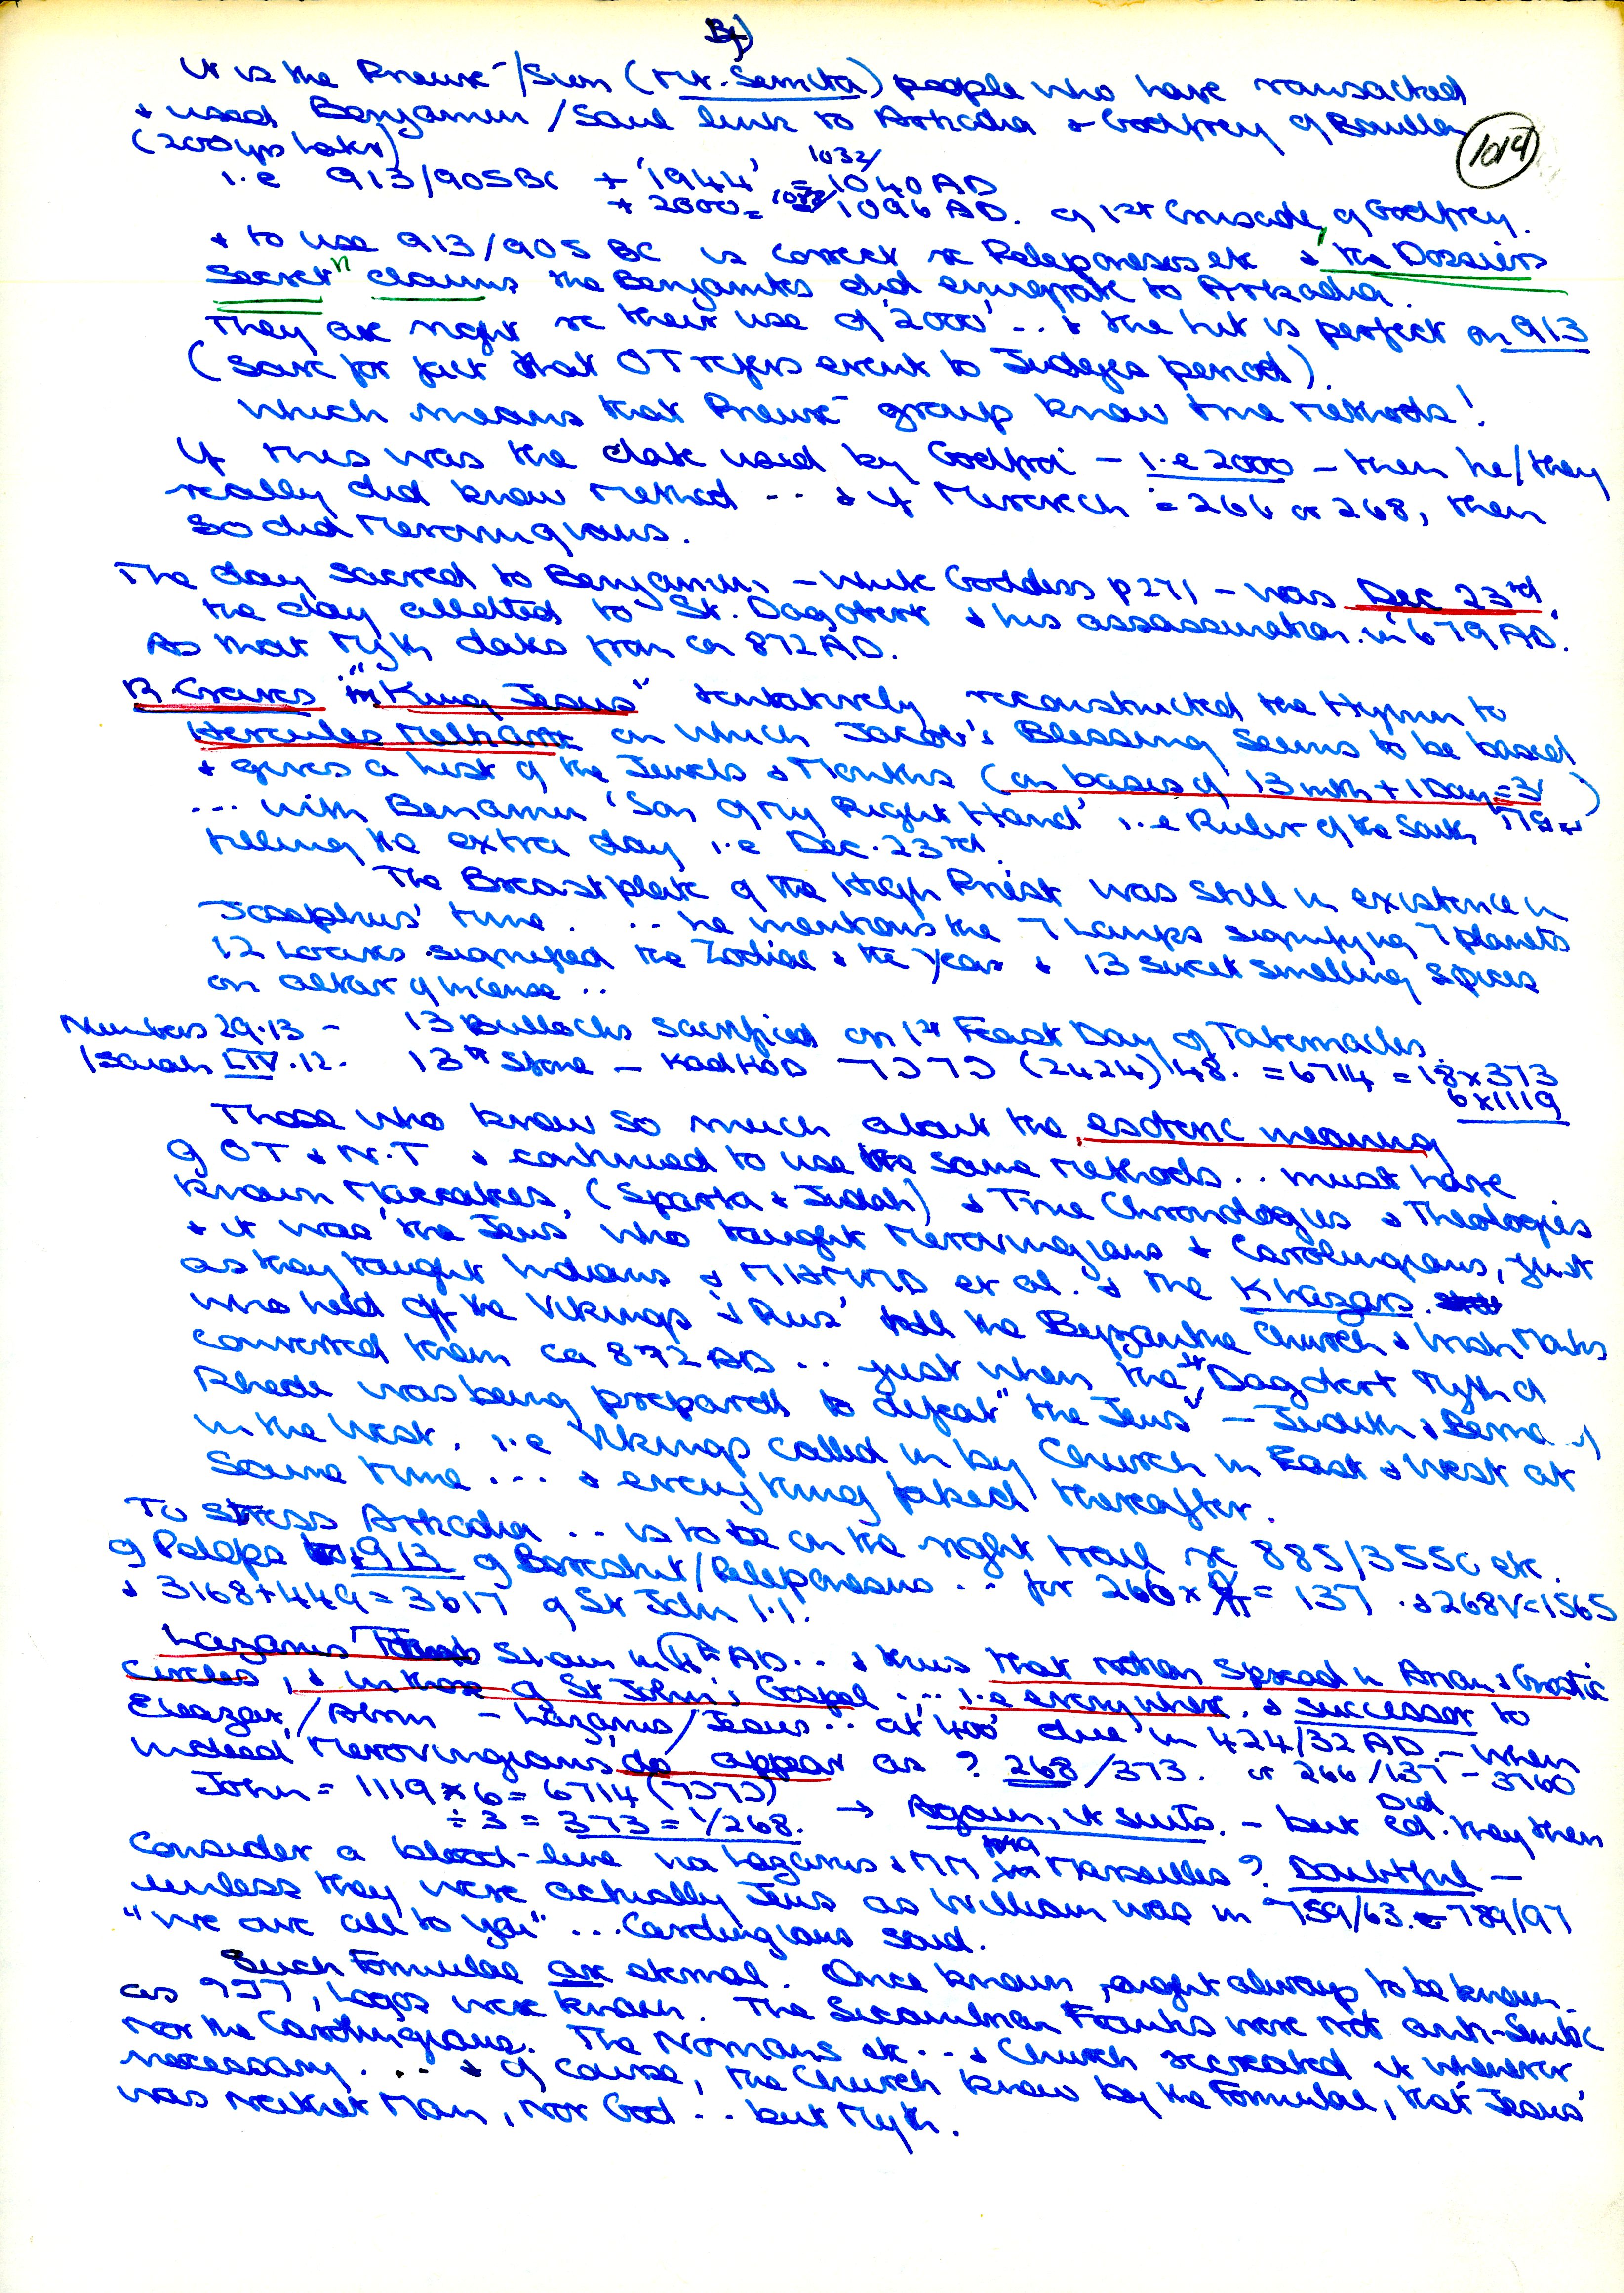 B4)
1014
It is the Prieuré/Sion (Mr. Semita) people who have ransacked
+ used Benjamin/Saul link to Arkadia + Godfrey of Bouillon
(200 yrs later)
i.e 913/905BC + '1944' = 1032/1040 AD
+ 2000 = 1096 AD. of 1st Crusade, of Godfrey.
+ to use 913/905 BC is correct re Peleponesos etc + the Dossiers
Secret claims the Benjamites did emigrate to Arkadia.
They are right re their use of '2000' .. + the hit is perfect on 913
(save for fact that OT refers event to Judges period).
Which means that Prieuré group know time methods!
If this was the date used by Godfroi - i.e 2000 - then he/they
really did know method ... + if Merovech = 266 or 268, then
so did Merovingians.
The day sacred to Benjamin, - White Goddess p271 - was Dec 23rd,
the day allotted to St. Dagobert + his assassination in 679 AD.
As that Myth dates from ca 872AD.
R. Graves in "King Jesus" tentatively reconstructed the Hymn to
Hercules Melkarth on which Jacob's Blessing seems to be based
+ gives a list of the Jewels + Months (on basis of 13 mth + 1 Day = 3/
... with Benjamin 'Son of my Right Hand' i.e Ruler of the South
filling the extra day i.e Dec. 23rd.
The Breastplate of the High Priest was still in existence in
Josephus' time. .. he mentions the 7 Lamps signifying 7 planets
12 loaves signified the Zodiac + the Year + 13 sweet smelling spices
on altar of incense ..
Numbers 29.13 - 13 Bullocks sacrificed on 1st Feast Day of Tabernacles.
Isaiah LIV.12. 13th Stone - KadKOD כדכד (2424) 48. = 6714 = 18x373
6x1119
Those who know so much about the esoteric meaning
of OT + N.T + continued to use the same methods .. must have
known Maccabees, (Sparta + Judah) + Time Chronologies + Theologies
+ it was 'the Jews' who taught Merovingians + Carolingians, just
as they taught Indians + MHMMD et al. + the Khazars.
who held off the Vikings + 'Rus' till the Byzantine Church + Irish Monks
converted them ca 872 AD .. just when the "St Dagobert Myth of
Rhedae was being prepared to defeat "the Jews" - Judith +
in the West, i.e Vikings called in by Church in East + West at
same time ... + everything faked thereafter.
To stress Arkadia .. is to be on the right trail re 885/3550 etc.
of Pelops 913 of / Peleponesus .. for 266 x = 137 . + 268 V = 1565
+ 3168+449 = 3617 of St John 1.1.
Lazarus' Tomb shown in 4th AD .. + thus that notion spread in Arian + Gnostic
circles, + in those of St John's Gospel ... i.e everywhere, + successor to
Eleazer/Abrm - Lazarus/Jesus .. at '400' due in 424/32 AD. - when
indeed Merovingians do appear as ? 268/373. or 266/137 - 3760
John = 1119 x 6 = 6714 (כדכד)
÷ 3 = 373 = 1/268. → Again, it suits. - but Did they then
consider a blood-line via Lazarus + MM Marseilles? Doubtful -
unless they were actually Jews as William was in 759/63. 789/97
"We are all to you" ... Carolingians said.
Such Formulae are eternal. Once known, ought always to be known.
as , Logos were known. The Sicambrian Franks were not anti-Semitic
nor the Carolingians. The Normans etc ... + Church recreated it whenever
necessary. .. + of course, the Church knew by the Formulae, that 'Jesus'
was neither Man, nor God .. but Myth.